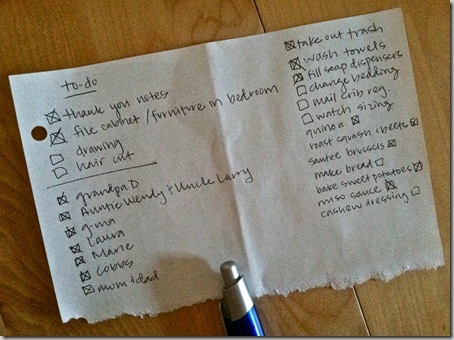 to-do
thank you notes
file cabinet / furniture in bedroom
drawing
hair cut
grandpa D
Auntie Wendy + Uncle Larry
g-ma
Laura
Marie
Cobbs
mom + dad
take out trash
wash towels
fill soap dispensers
change bedding
mail crib reg.
watch sizing
quinoa
roast squash & beets
sautee brussels
make bread
bake sweet potatoes
miso sauce
cashew dressing